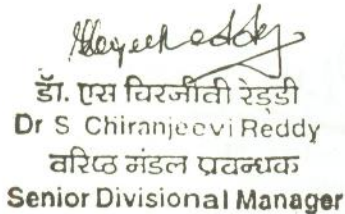 डॉ. एस चिरंजीवी रेड्डी
Dr S Chiranjeevi Reddy
वरिष्ठ मंडल प्रबन्धक
Senior Divisional Manager